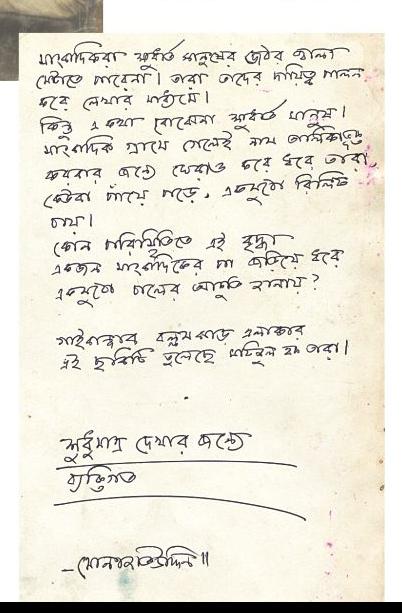 সাংবাদিকরা ক্ষুধার্ত মানুষের জঠর জ্বালা
মেটাতে পারেনা। তারা তাদের দায়িত্ব পালন
করে লেখার মাধ্যমে।
কিন্তু একথা বোঝেনা ক্ষুধার্ত মানুষ।
সাংবাদিক গ্রামে গেলেই নাম তালিকাভুক্ত
করবার জন্যে ঘেরাও করে ধরে তারা,
কেউবা পায়ে পড়ে, একমুঠো রিলিফ
চায়।
কোন পরিস্থিতিতে এই বৃদ্ধা
একজন সাংবাদিকের পা জড়িয়ে ধরে
একমুঠো চালের আকুতি জানায়?
গাইবান্ধার বল্লমঝাড় এলাকার
এই ছবিটি তুলেছে হক তারা।
শুধুমাত্র দেখার জন্যে
ব্যক্তিগত
—মোনাজাতউদ্দিন॥